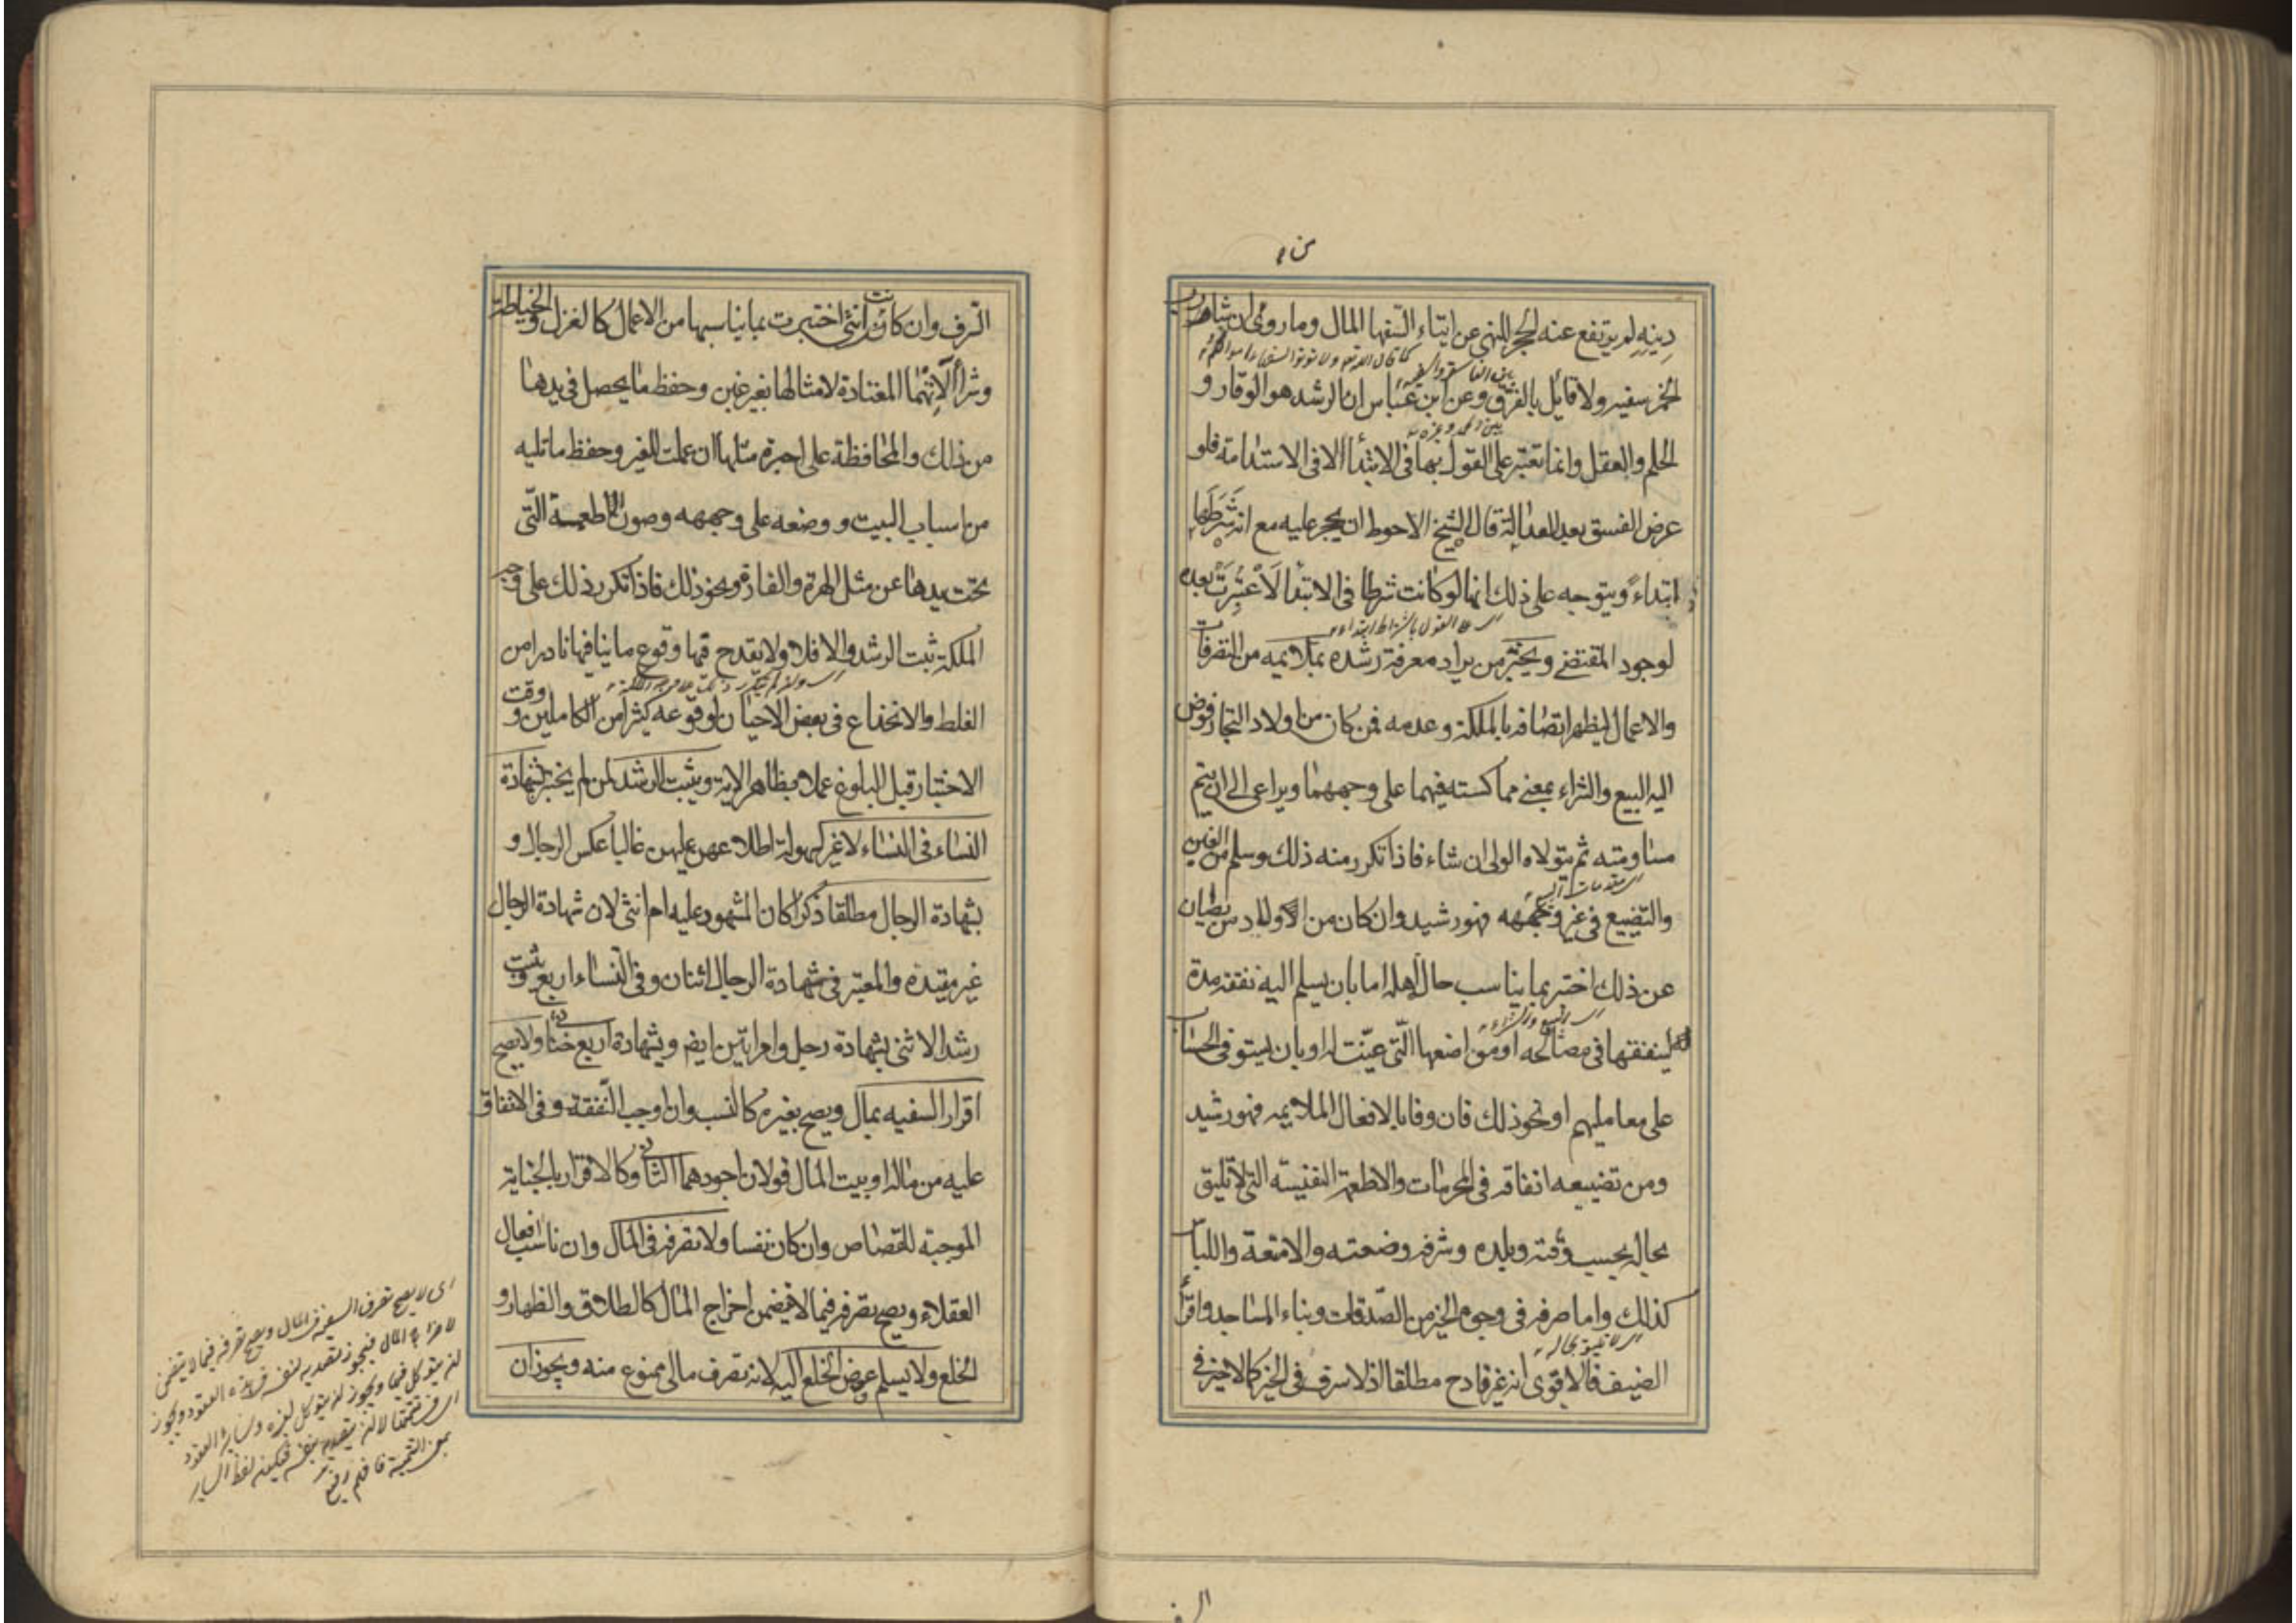 دينه لم يرتفع عنه الحجر للنهي عن ايتاء السفها المال وما روي ان شارب
الخمر سفيه ولا قائل بالفرق وعن ابن عباس ان الرشد هو الوقار و
الحلم والعقل وانما تعتبر على القول بها في الابتدأ لا في الاستدامة فلو
عرض الفسق بعد العدالة قال الشيخ الاحوط ان يحجر عليه مع انه شرطها
ابتداءً ويتوجه على ذلك انها لو كانت شرطا في الابتدا لاعتبرت بعده
اي على القول باشتراط ابتداء
لوجود المقتضي ويختبر من يراد معرفة رشده بملايمه من التصرفات
والاعمال ليظهر اتصافه بالملكة وعدمه فمن كان من اولاد التجار فوض
اليه البيع والشراء بمعنى مماكسته فيهما على وجههما ويراعى الى ان يتم
مساومته ثم يتولاه الولي ان شاء فاذا تكرر منه ذلك وسلم من الغبن
والتضييع في غير وجهه فهو رشيد وان كان من اولاد من يصان
عن ذلك اختبر بما يناسب حال اهله اما بان يسلم اليه نفقة مدة
اي البيع والشراء
لينفقها في مصالحه او مواضعها التي عينت له او بان يستوفي الحساب
على معامليهم او نحو ذلك فان وفا بالافعال الملايمه فهو رشيد
ومن تضييعه انفاقه في المحرمات والاطعمة النفيسه التي لا تليق
بحاله بحسب وقته وبلده وشرفه وضعته والامتعة واللباس
كذلك واما صرفه في وجوه الخير من الصدقات وبناء المساجد واقرأ
اي لا تليق بحاله
الضيف فالاقوى انه غير قادح مطلقا اذ لا سرف في الخير كما لا خير في
السرف وان كانت انثى اختبرت بما يناسبها من الاعمال كالغزل والخياطة
وشرأ آلاتهما المعتادة لامثالها بغير غبن وحفظ ما يحصل في يدها
من ذلك والمحافظة على اجرة مثلها ان عملت للغير وحفظ ما تليه
من اسباب البيت ووضعه على وجهه وصون الاطعمة التي
تحت يدها عن مثل الهرة والفارة ونحو ذلك فاذا تكرر ذلك على وجه
الملكة ثبت الرشد والا فلا ولا يقدح فيها وقوع ما ينافيها نادرا من
الغلط والانخداع في بعض الاحيان لوقوعه كثيرا من الكاملين ووقت
الاختبار قبل البلوغ عملا بظاهر الاية ويثبت الرشد لمن لم يختبر بشهادة
النساء في النساء لا غير لسهولة اطلاعهن عليهن غالبا عكس الرجال و
بشهادة الرجال مطلقا ذكرا كان المشهود عليه ام انثى لان شهادة الرجال
غير مقيدة والمعتبر في شهادة الرجال اثنان وفي النساء اربع ويثبت
رشد الانثى بشهادة رجل وامراتين ايضا وبشهادة اربع خناثى ولا يصح
اقرار السفيه بمال ويصح بغيره كالنسب وان اوجب النفقة وفي الانفاق
عليه من ماله او بيت المال قولان اجودهما الثاني وكالاقرار بالجناية
الموجبة للقصاص وان كان نفسا ولا تصرفه في المال وان ناسب افعال
العقلاء ويصح تصرفه فيما لا يتضمن اخراج المال كالطلاق والظهار و
الخلع ولا يسلم عوض الخلع اليه لانه تصرف مالي ممنوع منه ويجوز ان
اي لا يصح تصرف السفيه في المال ويصح تصرفه فيما لا يتضمن